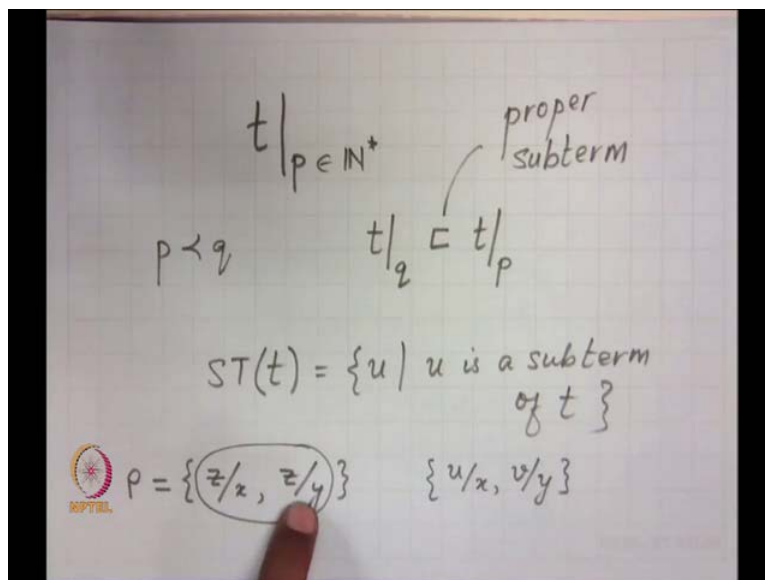 t|p ∈ ℕ*
proper
subterm
p ≺ q t|q ⊏ t|p
ST(t) = {u | u is a subterm
of t }
ρ = {z/x, z/y} {u/x, v/y}
NPTEL